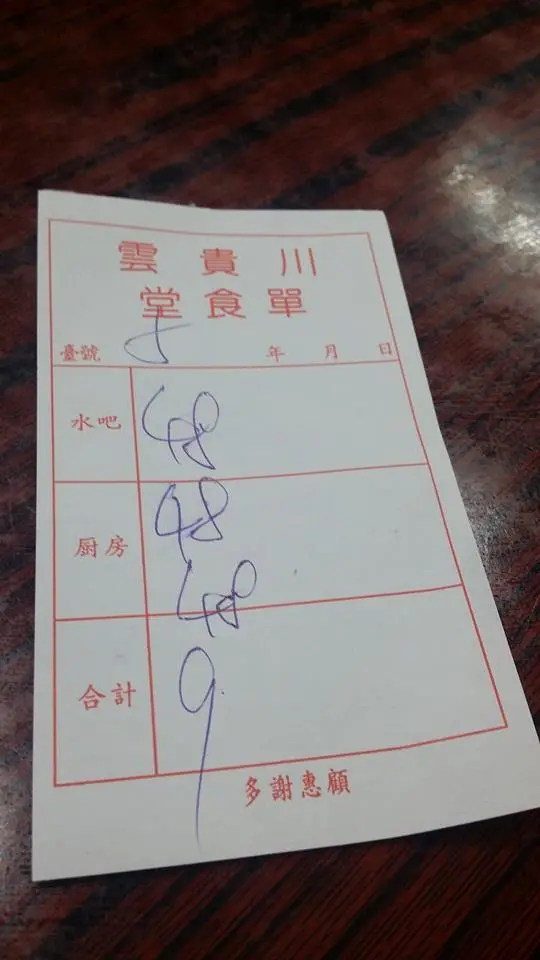 雲貴川
堂食單
臺號 5 年 月 日
水吧 48
厨房 48
48
合計 9
多謝惠顧